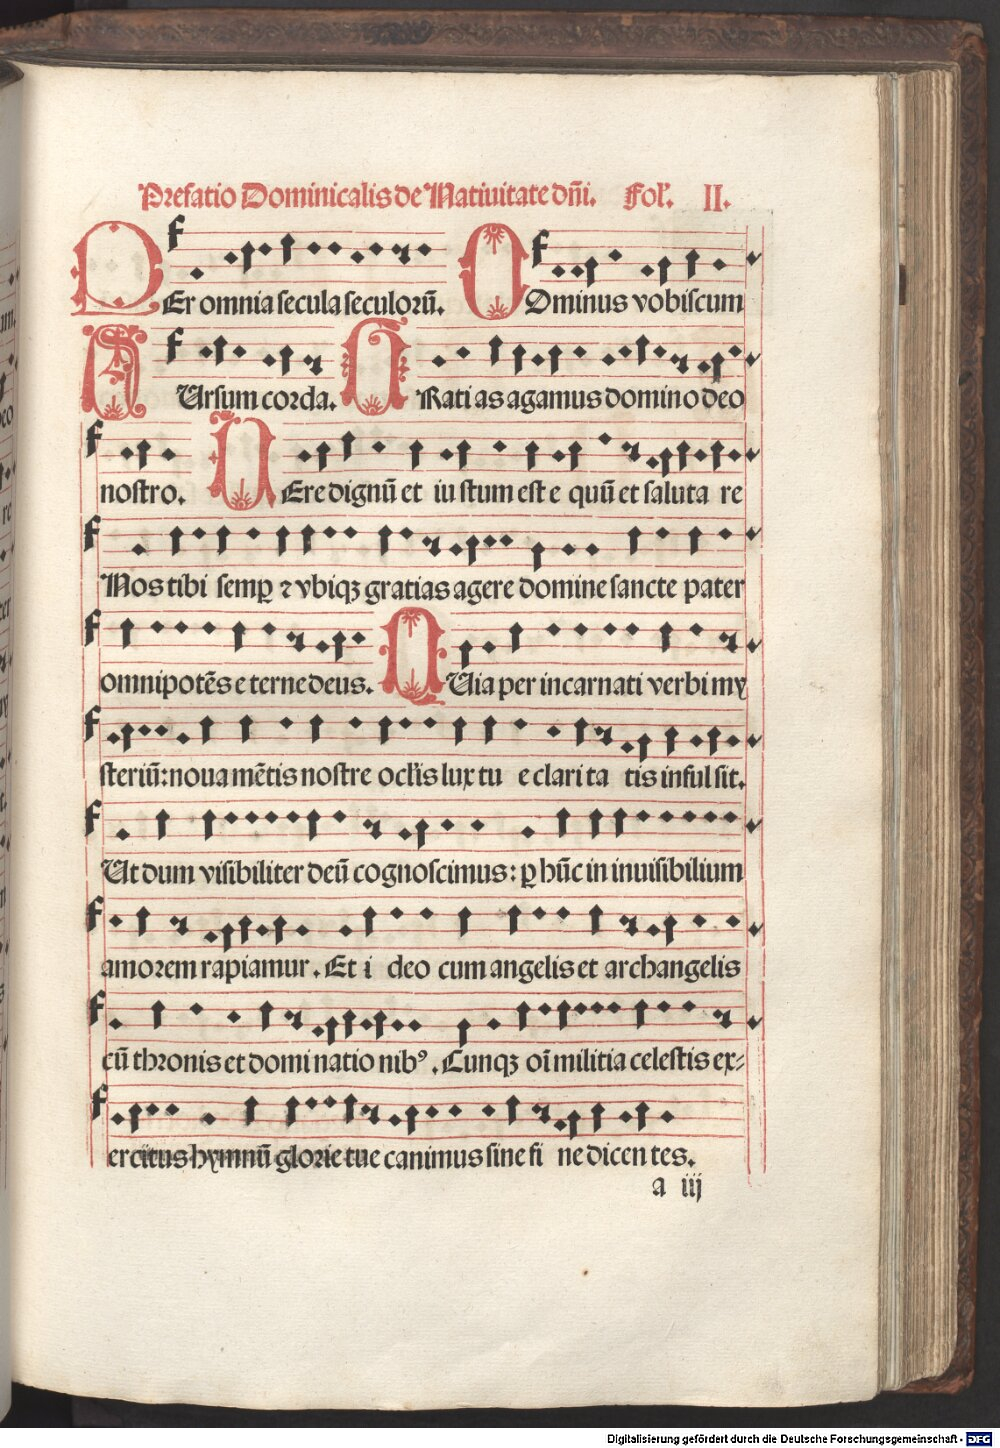 Prefatio Dominicalis de Natiuitate dñi. Fol'. II.
PEr omnia secula seculorũ. DOminus vobiscum
SUrsum corda. GRati as agamus domino deo
nostro. VEre dignũ et iu stum est e quũ et saluta re
Nos tibi semꝑ ⁊ vbiqꝫ gratias agere domine sancte pater
omnipotẽs e terne deus. QUia per incarnati verbi my
steriũ: noua mẽtis nostre ocl'is lux tu e clari ta tis infulsit.
Ut dum visibiliter deũ cognoscimus: ꝑ hũc in inuisibilium
amorem rapiamur. Et i deo cum angelis et archangelis
cũ thronis et domi natio nibꝰ. Cunqꝫ oĩ militia celestis ex-
ercitus hymnũ glorie tue canimus sine fi ne dicen tes.
a iij
Digitalisierung gefördert durch die Deutsche Forschungsgemeinschaft - DFG